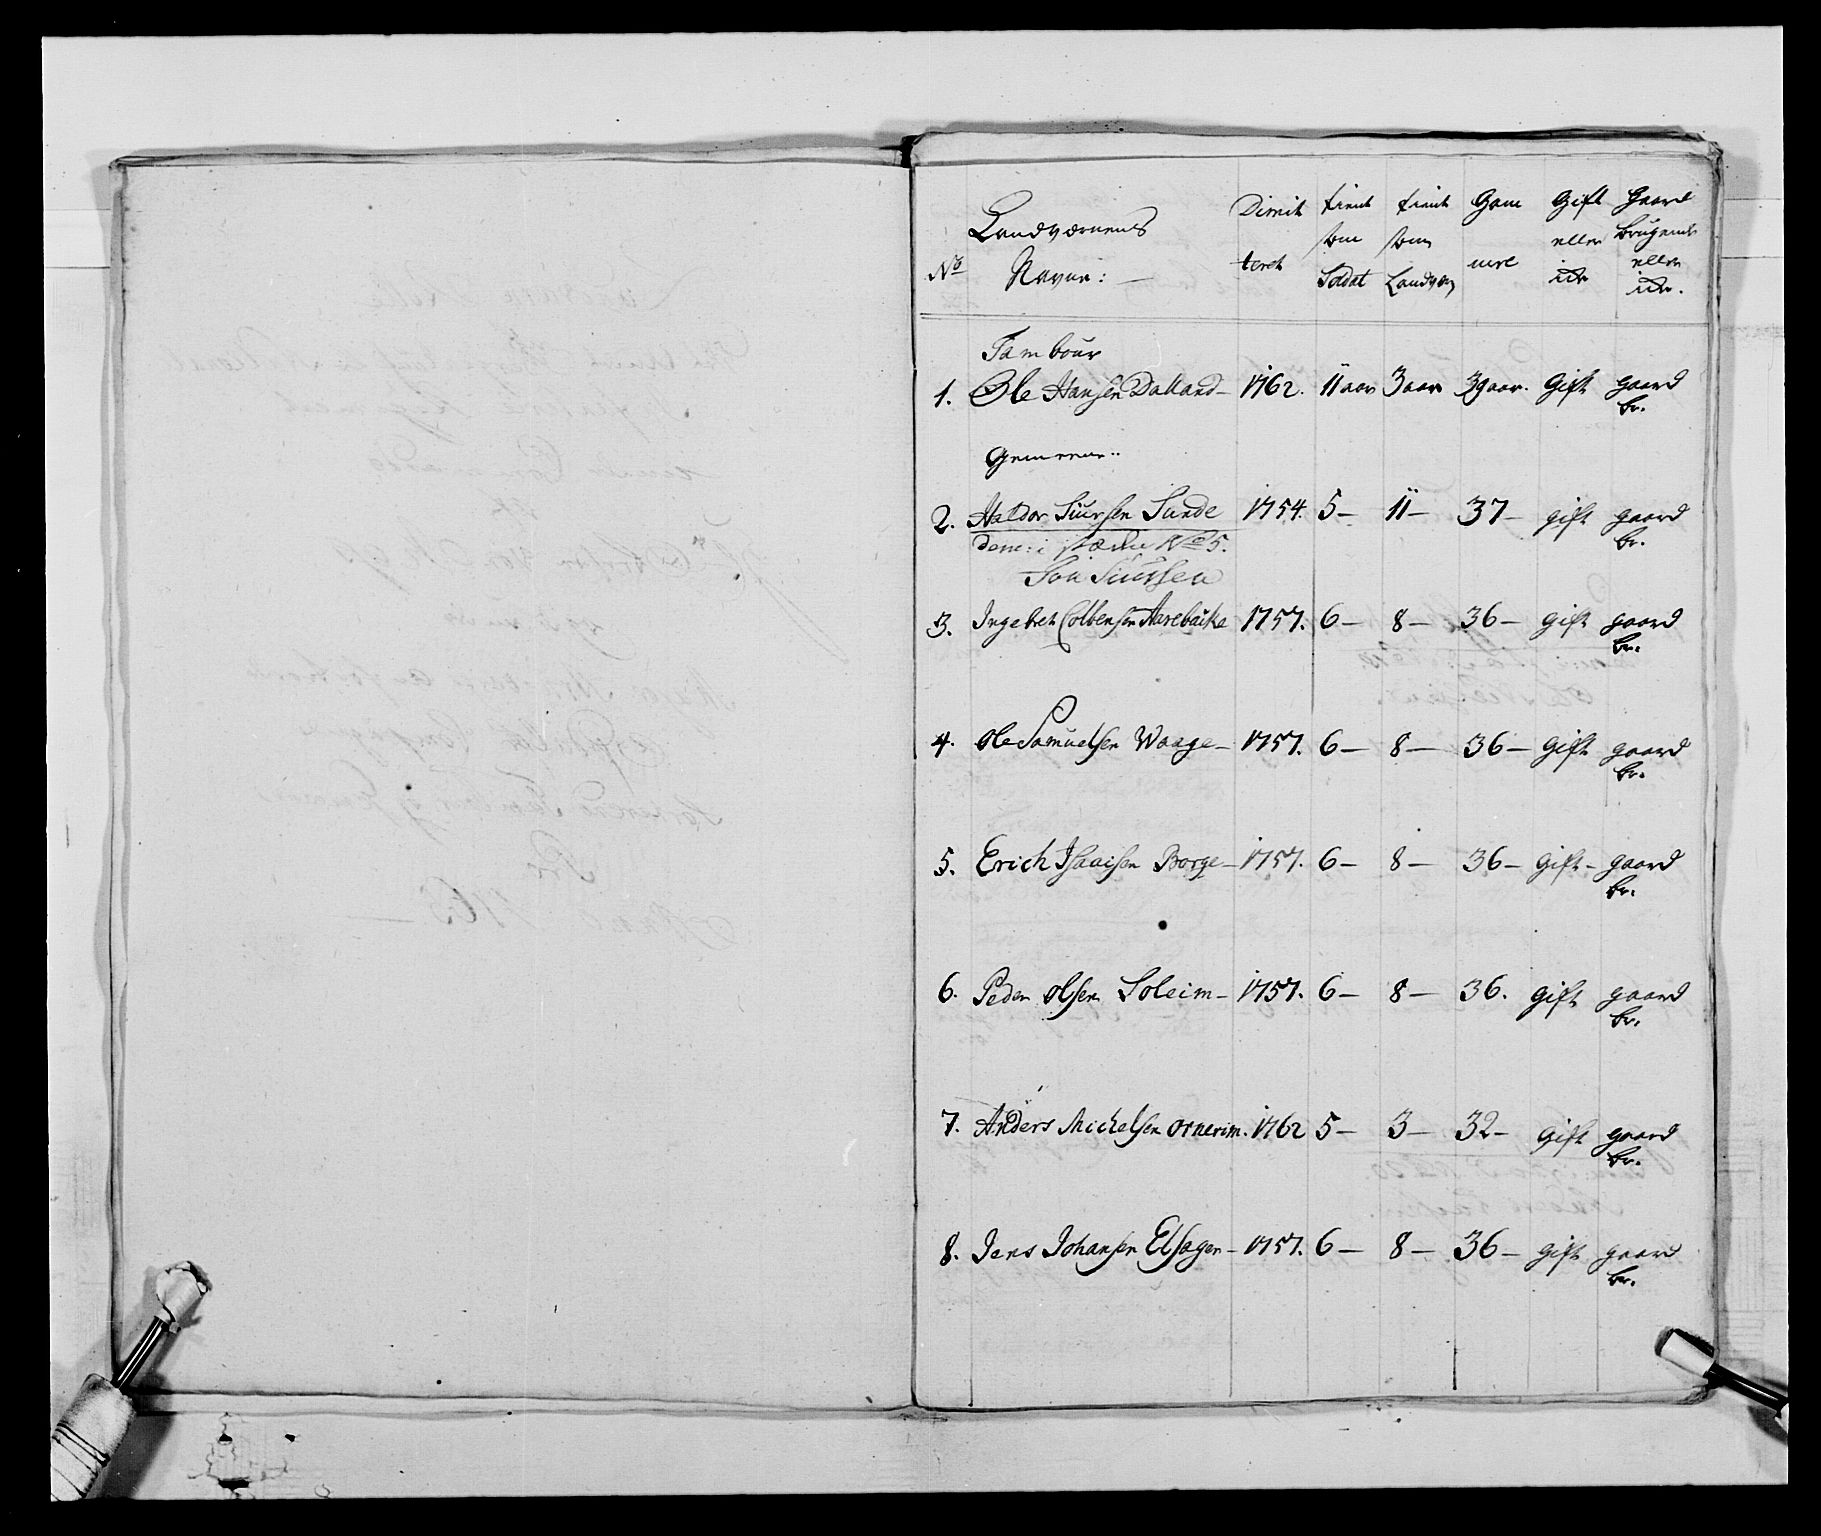 No Landværnens Navne: — Dimitteret tient som Soldat tient som Landværn Gammel Gift eller ide Gaard brugende eller ide.
Tambour
1. Ole Hansen Dalland – 1762. 11 aar 3 aar 39 aar. Gift gaard
br.
Gemeene:
2. Haldor Siursen Sunde 1754. 5 – 11 – 37 – gift gaard
br.
No 5.
Siursen
3. Ingebret Colbensen Aarebacke 1757. 6 – 8 – 36 – gift gaard
br.
4. Ole Samuelsen Waage – 1757. 6 – 8 – 36 – gift gaard
br.
5. Erich Isaaisen Borge – 1757. 6 – 8 – 36 – gift – gaard
br.
6. Peder Olsen Soleim – 1757. 6 – 8 – 36. gift gaard
br.
7. Anders Michelsen Ornerim. 1762 5 – 3 – 32 – gift gaard
br.
8. Jens Johansen Elsager – 1757. 6 – 8 – 36 – gift gaard
br.